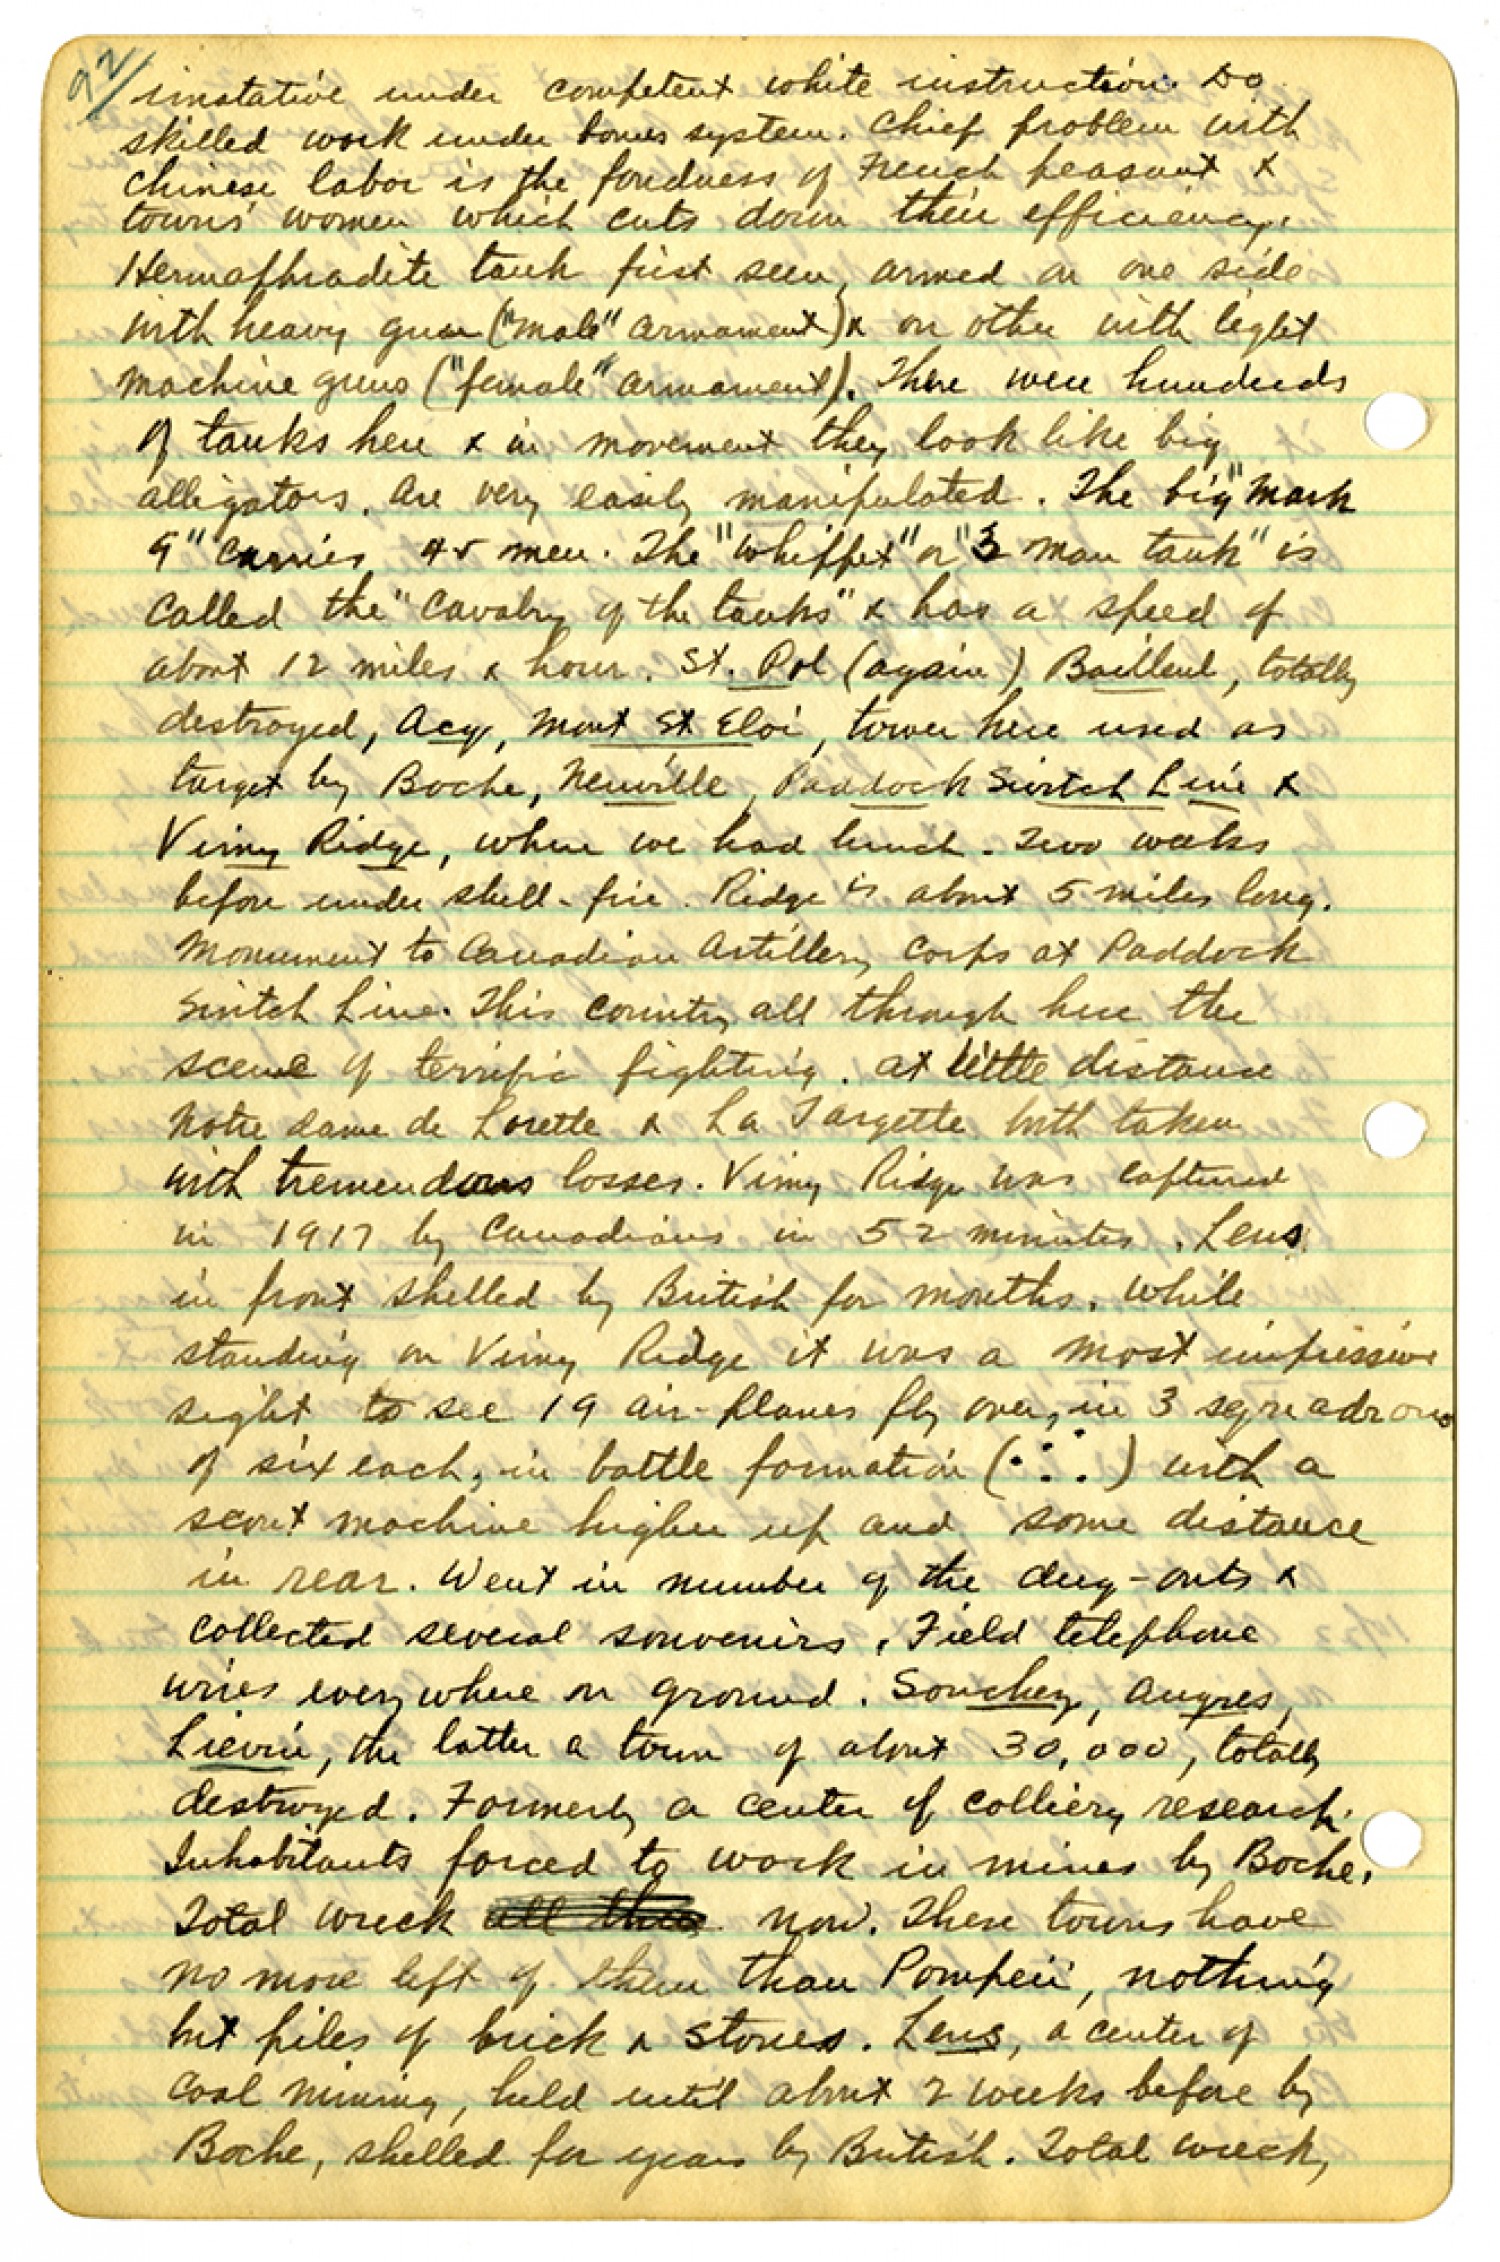 22/
imatative under competent white instruction. Do
skilled work under bonus system. Chief problem with
Chinese labor is the fondness of French peasant &
towns' women which cuts down their efficiency.
Hermaphradite tank first seen, armed on one side
with heavy guns ("male" armament) & on other with light
machine guns ("female" armament). There were hundreds
of tanks here & in movement they look like big
alligators. Are very easily manipulated. The big "Mark
9" carries 45 men. The "whippet" or "3 man tank" is
called the "Cavalry of the tanks" & has a speed of
about 12 miles & hour. St. Pol (again) Bailleul, totally
destroyed, Acq, Mont St Eloi, tower here used as
target by Boche, Neuville, Paddock Switch Line &
Vimy Ridge, where we had lunch. Two weeks
before under shell-fire. Ridge is about 5 miles long.
Monument to Canadian Artillery Corps at Paddock
Switch Line. This country all through here the
scene of terrific fighting. At little distance
Notre Dame de Lorette & La Targette both taken
with tremendous losses. Vimy Ridge was captured
in 1917 by Canadians in 52 minutes. Lens
in front shelled by British for months. While
standing on Vimy Ridge it was a most impressive
sight to see 19 air-planes fly over, in 3 squadrons
of six each, in battle formation (⋅:⋅.) with a
scout machine higher up and some distance
in rear. Went in number of the dug-outs &
collected several souvenirs. Field telephone
wires everywhere on ground. Souchez, Angres,
Lievin, the latter a town of about 30,000, totally
destroyed. Formerly a center of colliery research.
Inhabitants forced to work in mines by Boche.
Total wreck now. These towns have
no more left of them than Pompeii, nothing
but piles of brick & stones. Lens, a center of
coal mining, held until about 2 weeks before by
Boche, shelled for years by British. Total wreck,